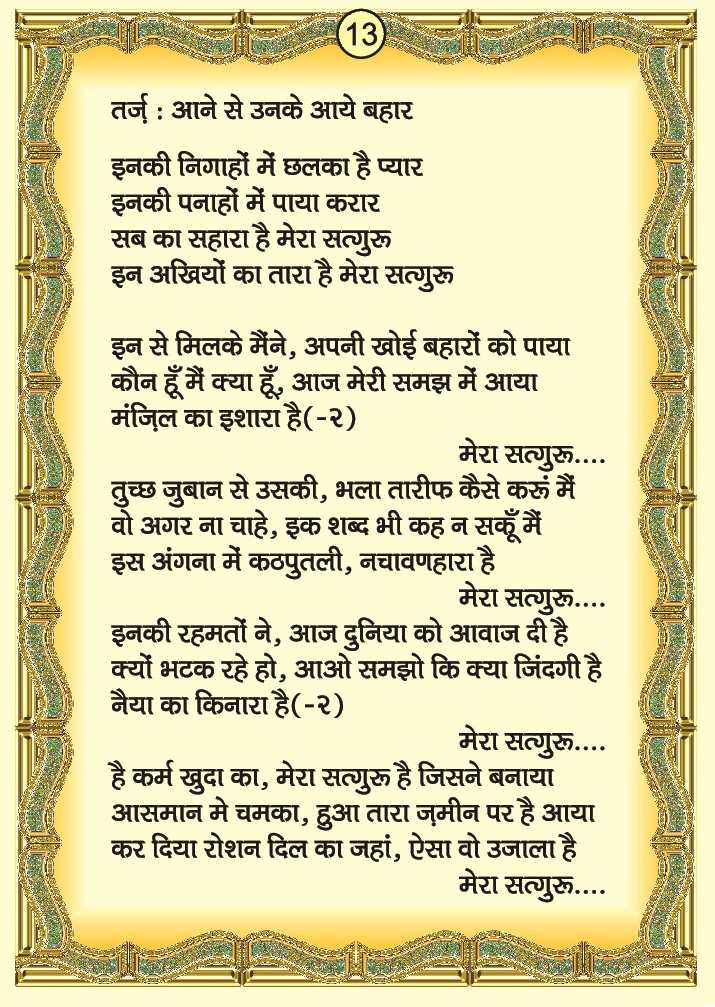 13
तर्ज़ : आने से उनके आये बहार
इनकी निगाहों में छलका है प्यार
इनकी पनाहों में पाया करार
सब का सहारा है मेरा सत्गुरू
इन अखियों का तारा है मेरा सत्गुरू
इन से मिलके मैंने, अपनी खोई बहारों को पाया
कौन हूँ मैं क्या हूँ, आज मेरी समझ में आया
मंज़िल का इशारा है(-२)
मेरा सत्गुरू....
तुच्छ जुबान से उसकी, भला तारीफ कैसे करूं मैं
वो अगर ना चाहे, इक शब्द भी कह न सकूँ मैं
इस अंगना में कठपुतली, नचावणहारा है
मेरा सत्गुरू....
इनकी रहमतों ने, आज दुनिया को आवाज दी है
क्यों भटक रहे हो, आओ समझो कि क्या जिंदगी है
नैया का किनारा है(-२)
मेरा सत्गुरू....
है कर्म खुदा का, मेरा सत्गुरू है जिसने बनाया
आसमान मे चमका, हुआ तारा ज़मीन पर है आया
कर दिया रोशन दिल का जहां, ऐसा वो उजाला है
मेरा सत्गुरू....